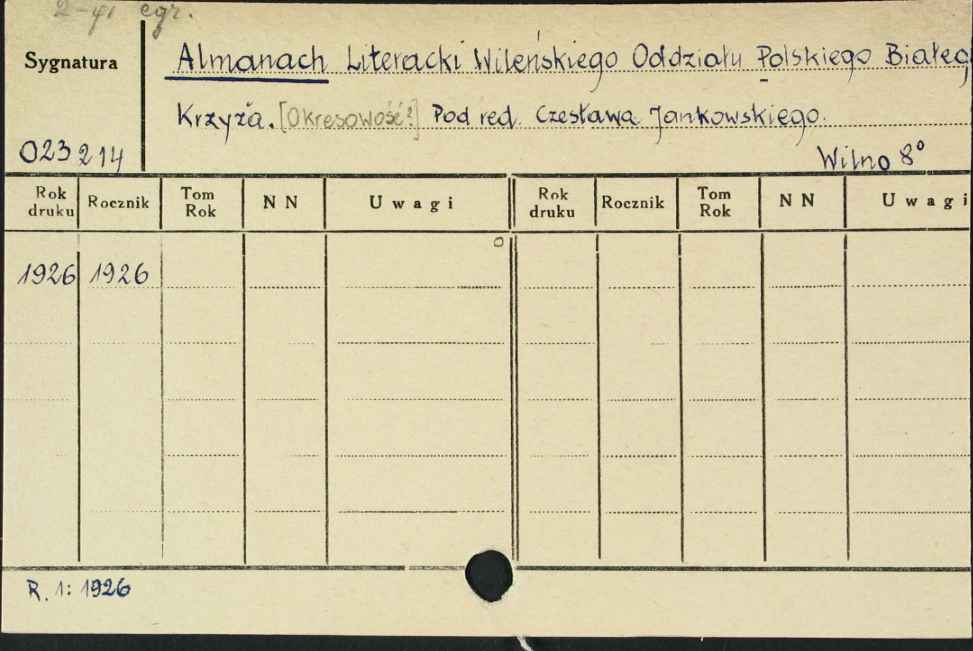 2-gi egz.
Sygnatura
Almanach Literacki Wileńskiego Oddziału Polskiego Białeg
Krzyża. [Okresowość?] Pod red. Czesława Jankowskiego.
023214
Wilno 8°
Rok druku Rocznik Tom Rok NN Uwagi Rok druku Rocznik Tom Rok NN Uwagi
1926 1926
R. 1: 1926